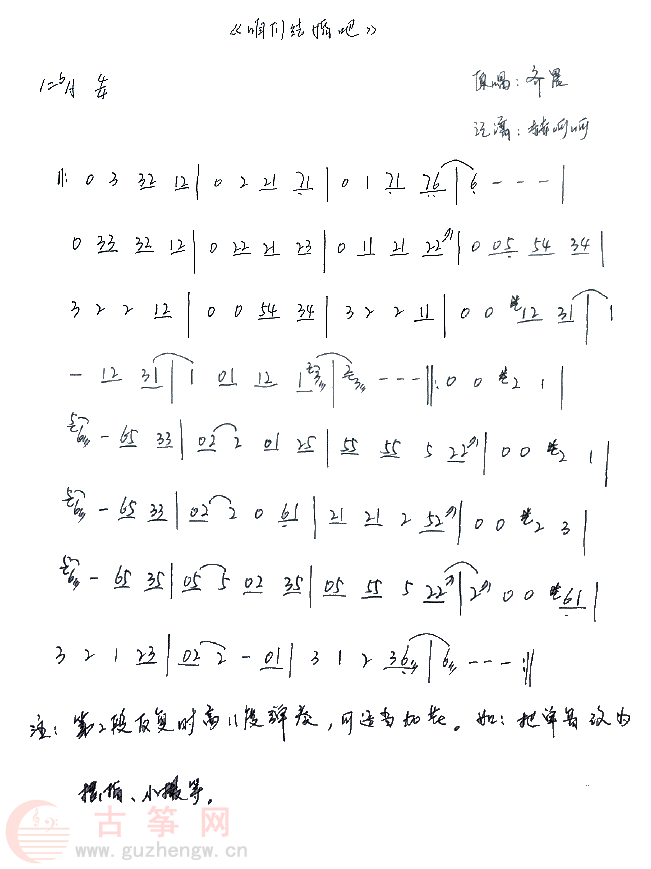 《咱们结婚吧》
1=♭A 4/4
原唱：齐晨
记谱：赫赫呵呵
‖: 0 3 32 12 | 0 2 21 71 | 0 1 71 76 | 6 - - - |
0 33 32 12 | 0 22 21 23 | 0 11 21 22 | 0 05 54 34 |
3 2 2 12 | 0 0 54 34 | 3 2 2 11 | 0 0 12 31 | 1
- 12 31 | 1 01 12 13 | 3 - - - :‖: 0 0 2 1 |
6 - 65 33 | 02 2 01 25 | 55 55 5 22 | 0 0 2 1 |
6 - 65 33 | 02 2 0 61 | 21 21 2 52 | 0 0 2 3 |
6 - 65 35 | 05 5 02 35 | 05 55 5 22 | 2 0 0 61 |
3 2 1 23 | 02 2 - 01 | 3 1 2 36 | 6 - - - :‖
注：第2段反复时高八度弹奏，可适当加花。如：把单音改为
摇指、小撮等。
古筝网
www.guzhengw.cn